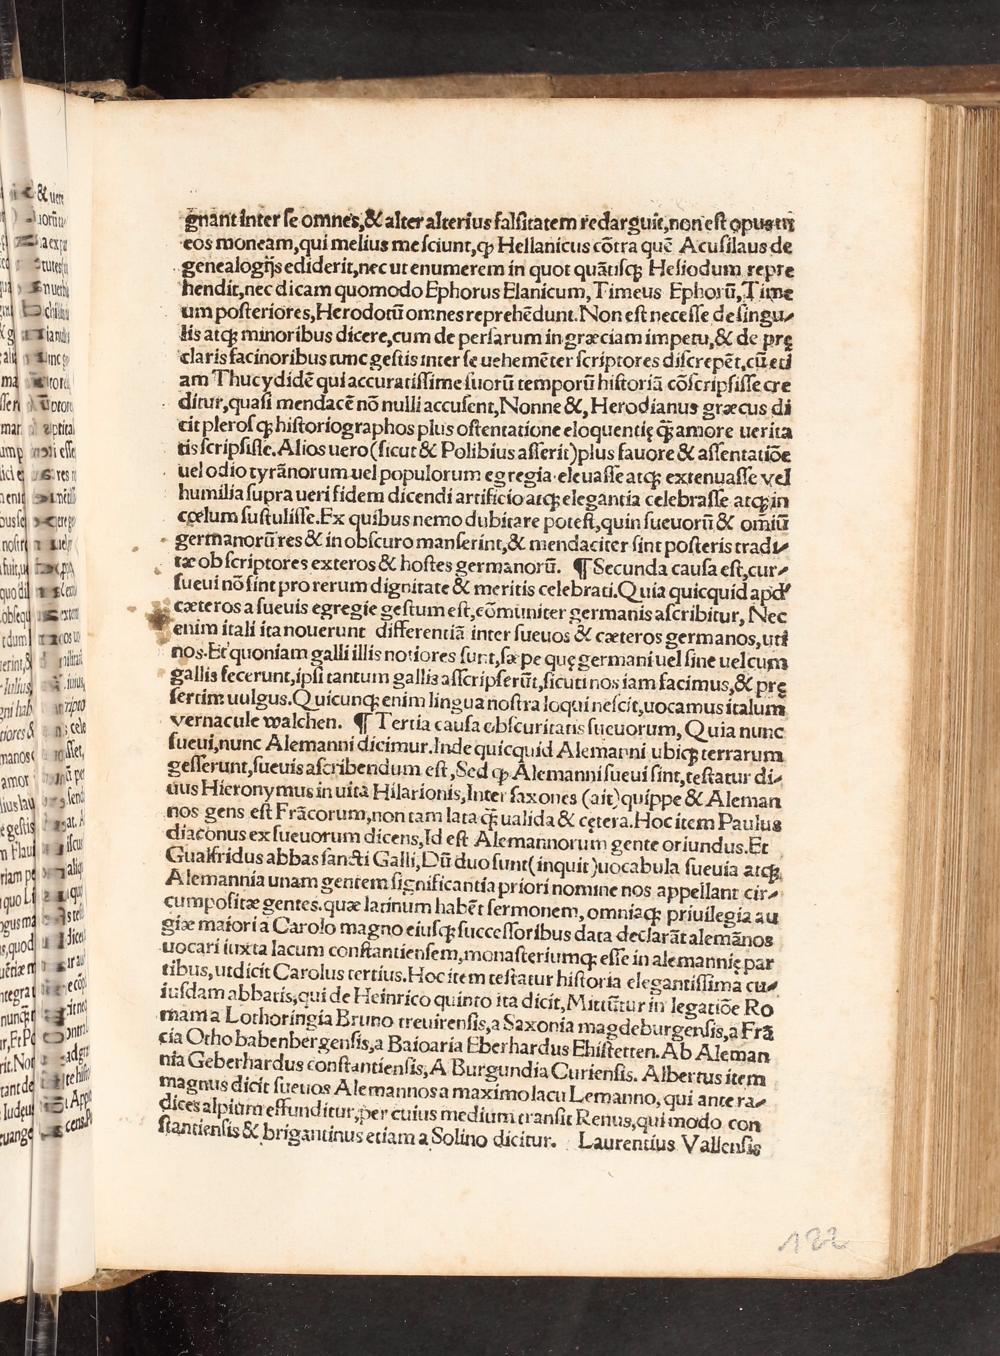 gnant inter se omnes,& alter alterius falsitatem redarguit,non est opus ut
eos moneam,qui melius me sciunt,ꝙ Hellanicus cōtra quē Acusilaus de
genealogijs ediderit,nec ut enumerem in quot quātisqꝫ Hesiodum repre
hendit,nec dicam quomodo Ephorus Elanicum,Timeus Ephorū,Time
um posteriores,Herodotū omnes reprehēdunt.Non est necesse de singu⸗
lis atqꝫ minoribus dicere,cum de persarum in græciam impetu,& de prę
claris facinoribus tunc gestis inter se uehemēter scriptores discrepēt,cū eti
am Thucydidē qui accuratissime suorū temporū historiā cōscripsisse cre
ditur,quasi mendacē nō nulli accusent,Nonne &,Herodianus græcus di
cit plerosqꝫ historiographos plus ostentatione eloquentię qꝫ̄ amore uerita
tis scripsisse.Alios uero(sicut & Polibius asserit)plus fauore & assentatiōe
uel odio tyrānorum uel populorum egregia eleuasse atqꝫ extenuasse vel
humilia supra ueri fidem dicendi artificio atqꝫ elegantia celebrasse atqꝫ in
cœlum sustulisse.Ex quibus nemo dubitare potest,quin sueuorū & omiū
germanorū res & in obscuro manserint,& mendaciter sint posteris tradi⸗
tæ ob scriptores exteros & hostes germanorū. ¶ Secunda causa est,cur⸗
sueui nō sint pro rerum dignitate & meritis celebrati.Quia quicquid apd'
cæteros a sueuis egregie gestum est,cōmuniter germanis ascribitur, Nec
enim itali ita nouerunt differentiā inter sueuos & cæteros germanos,uti
nos.Et quoniam galli illis notiores sunt,sæpe quę germani uel sine uel cum
gallis fecerunt,ipsi tantum gallis asscripserūt,sicuti nos iam facimus,& prę
sertim uulgus.Quicunqꝫ enim lingua nostra loqui nescit,uocamus italum
vernacule walchen. ¶ Tertia causa obscuritatis sueuorum, Quia nunc
sueui,nunc Alemanni dicimur.Inde quicquid Alemanni ubiqꝫ terrarum
gesserunt,sueuis ascribendum est,Sed ꝙ Alemanni sueui sint,testatur di⸗
uus Hieronymus in uita Hilarionis,Inter saxones (ait)quippe & Aleman
nos gens est Frācorum,non tam lata qꝫ̄ ualida & cętera.Hoc item Paulus
diaconus ex sueuorum dicens,Id est Alemannorum gente oriundus.Et
Gualfridus abbas sancti Galli,Dū duo sunt(inquit)uocabula sueuia atqꝫ
Alemannia unam gentem significantia priori nomine nos appellant cir⸗
cumpositæ gentes.quæ latinum habēt sermonem, omniaqꝫ priuilegia au
giæ maiori a Carolo magno eiusqꝫ successoribus data declarāt alemānos
uocari iuxta lacum constantiensem,monasteriumqꝫ esse in alemannię par
tibus,ut dicit Carolus tertius.Hoc item testatur historia elegantissima cu⸗
iusdam abbatis,qui de Heinrico quinto ita dicit,Mittūtur in legatiōe Ro
mam a Lothoringia Bruno treuirensis,a Saxonia magdeburgensis,a Frā
cia Otho babenbergensis,a Baioaria Eberhardus Ehistetten.Ab Aleman
nia Geberhardus constantiensis,A Burgundia Curiensis. Albertus item
magnus dicit sueuos Alemannos a maximo lacu Lemanno, qui ante ra⸗
dices alpium effunditur,per cuius medium transit Renus,qui modo con
stantiensis & brigantinus etiam a Solino dicitur. Laurentius Vallensis
122